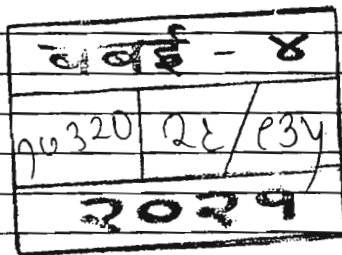 बबई - ४
१७३२० २८/१३५
२०२१